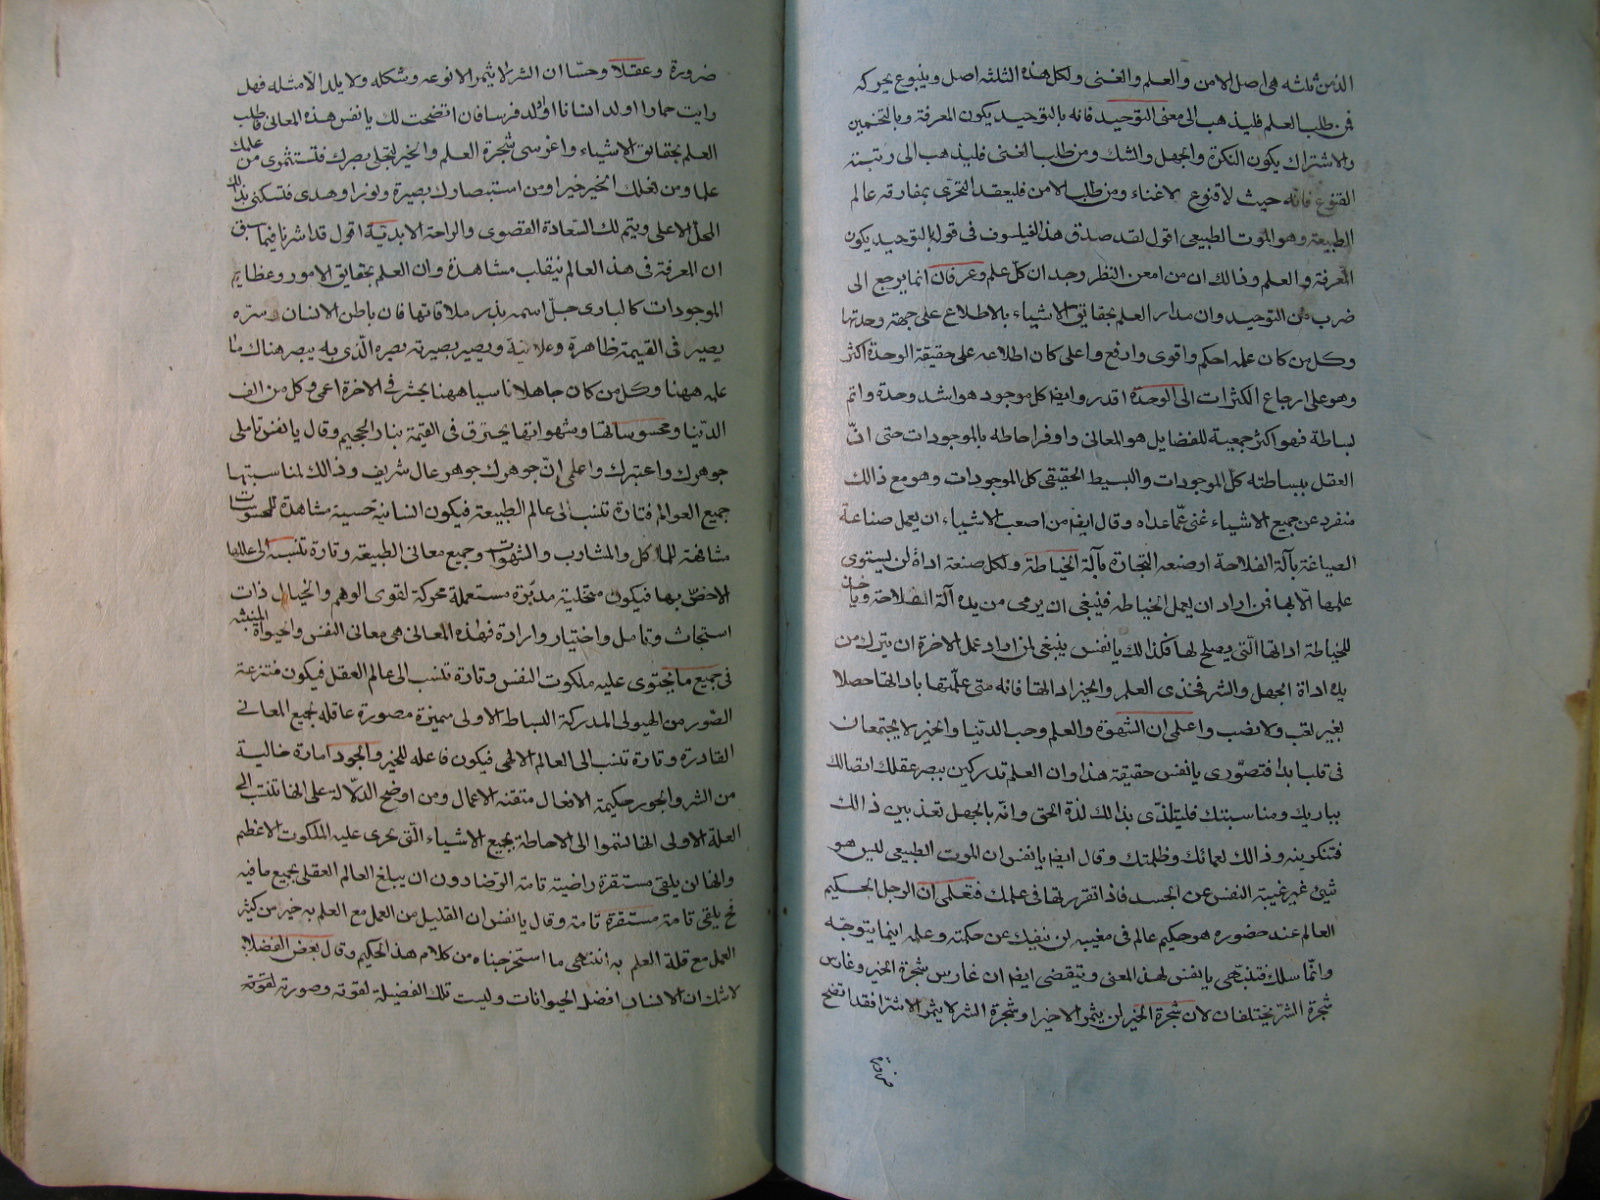 الذهن ثلثه هى اصل الامن والعلم والغنى ولكل هذه الثلثه اصل وينبوع يحركه
فمن طلب العلم فليذهب الى معنى التوحيد فانه بالتوحيد يكون المعرفة وبالتخمين
والاشتراك يكون النكرة والجهل والشك ومن طلب الغنى فليذهب الى رتبة
القنوع فانه حيث لا قنوع لا غناء ومن طلب الامن فليعقد التحرّى بمفارقه عالم
الطبيعة وهو الموت الطبيعى اقول لقد صدق هذا الفيلسوف فى قوله بالتوحيد يكون
المعرفة والعلم وذالك ان من امعن النظر وجد ان كلّ علم وعرفان انما يرجع الى
ضرب من التوحيد وان مدار العلم بحقايق الاشياء بالاطلاع على جهة وحدتها
وكل من كان علمه احكم واقوى وارفع واعلى كان اطلاعه على حقيقة الوحدة اكثر
وهو على ارجاع الكثرات الى الوحدة اقدر وايضا كل موجود هو اشد وحدة واتم
بساطة فهو اكثر جمعية للفضايل هو المعانى واوفر احاطه بالموجودات حتى انّ
العقل ببساطته كلّ الموجودات والبسيط الحقيقى كل الموجودات وهو مع ذالك
منفرد عن جميع الاشياء غنى عمّا عداه وقال ايضا من اصعب الاشياء ان يعمل صناعة
الصياغة بآلة الفلاحة او صنعه النجارة بآلة الخياطة ولكل صنعة اداة لن يستوى
علمها الّا بها فمن اراد ان يعمل الخياطه فينبغى ان يرمى من يده آلة الفلاحة وياخذ
للخياطة اداتها الّتى يصلح لها فكذالك يا نفس ينبغى لمن اراد عمل الاخرة ان يترك من
يده اداة الجهل والشر فخذى العلم والخير اداتها فانه متى علّمتها باداتها حصلا
بغير تعب ولا نصب واعلمى ان الشهوة والعلم وحب الدنيا والخير لا يجتمعان
فى قلب ابدا فتصوّرى يا نفس حقيقة هذا وان العلم تدركين ببصر عقلك اتصالك
بباريك ومناسبتك فليتلذّى بذالك لذة الحق وانّه بالجهل تعذبين ذالك
فتنكرينه وذالك لعمائك وظلمتك وقال ايضا يا نفس ان الموت الطبيعى ليس هو
شئ غير غيبة النفس عن الجسد فاذا تقرر لها فى علمك فتعلمى ان الرجل الحكيم
العالم عند حضوره هو حكيم عالم فى مغيبه لن ينفك عن حكمته وعلمه اينما يتوجّه
وانّما سلك فتنبّهى يا نفس لهذ المعنى وتيقضى ايضا ان غارس شجرة الخير وغارس
شجرة الشرّ يختلفان لان شجرة الخير لن يثمر الا خيرا وشجرة الشر لا يثمر الا شرا فقد اتضح
ضرورة
ضرورة وعقلا وحسّا ان الشر لا يثمر الا نوعه وشكله ولا يلد الّا مثله فهل
رايت حمارا اولد انسانا او ولد فرسا فان اتضحت لك يا نفس هذه المعانى فاطلب
العلم بحقايق الاشياء واغرسى شجرة العلم والخير لتجلى بصرك فتستثمرى من علمك
علما ومن فعلك الخير خيرا ومن استبصارك بصيرة ونورا وهدى فتسكنى بذالك
المحل الاعلى ويتم لك السعادة القصوى والراحة الابدية اقول قد اشرنا فيما سبق
ان المعرفة فى هذ العالم ينقلب مشاهدة وان العلم بحقايق الامور وعظايم
الموجودات كالبارى جلّ اسمه بذر ملاقاتها فان باطن الانسان وسرّه
يصير فى القيمة ظاهرة وعلانية ويصير بصيرته بصره الّذى به يبصر هناك ما
علمه ههنا وكل من كان جاهلا ناسيا ههنا يحشر فى الاخرة اعمى وكل من الف
الدنيا ومحسوساتها وشهواتها يحترق فى القيمة بنار الجحيم وقال يا نفس تاملى
جوهرك واعتبرك واعلمى انّ جوهرك جوهر عال شريف وذالك لمناسبتها
جميع العوالم فتارة تنسب الى عالم الطبيعة فيكون انسانية حسية مشاهدة للمحسوسات
مشافهة للمأكل والمشارب والشهوات وجميع معانى الطبيعه وتارة تنسب الى عالمها
الاخصّ بها فيكون متخلية مدبّرة مستعملة محركة لقوى الوهم والخيال ذات
استجاث وتامل واختيار وارادة فهذه المعانى هى معانى النفس والحيواة المنبثه
فى جميع ما يحتوى عليه ملكوت النفس وتارة تنسب الى عالم العقل فيكون منتزعة
الصّور من الهيولى المدركة البساط الاولى مميزة مصورة عاقلة لجميع المعانى
القادرة وتارة تنسب الى العالم الالهى فيكون فاعله للخير والجود امارة خالية
من الشر والجور حكيمة الافعال متقنه الاعمال ومن اوضح الدلالة على انها تنتسب الى
العلّة الاولى انها تسموا الى الاحاطة بجميع الاشياء الّتى يحرى عليه الملكوت الاعظم
وانها لن يلقى مستقرة راضية تامة الرضا دون ان يبلغ العالم العقلى بجميع ما فيه
فح يلقى تامة مستقرة تامة وقال يا نفس ان القليل من العمل مع العلم به خير من كثير
العمل مع قلة العلم به انتهى ما استخرجناه من كلام هذ الحكيم وقال بعض الفضلا
لا شك ان الانسان افضل الحيوانات وليست تلك الفضيلة لقوته وصورته لقوته